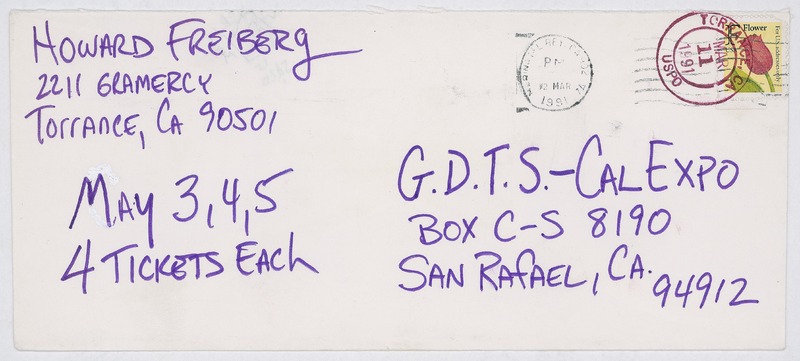 HOWARD FREIBERG
2211 GRAMERCY
TORRANCE, CA 90501
MAY 3, 4, 5
4 TICKETS EACH
G.D.T.S.-CAL EXPO
BOX C-S 8190
SAN RAFAEL, CA.
94912
PM
12 MAR
1991
TORRANCE, CA
MAR
11
1991
USPO
Flower